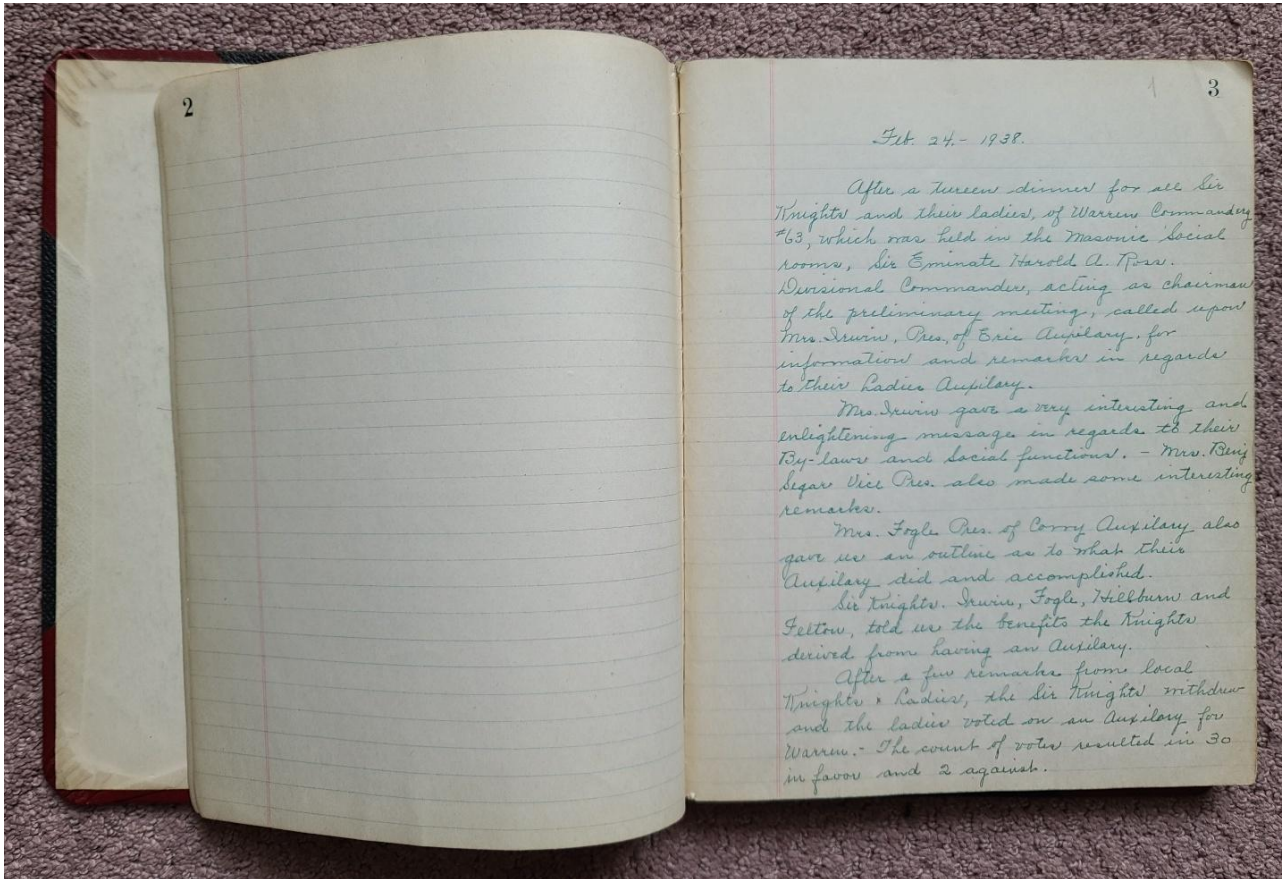 2
1 3
Feb. 24.- 1938.
After a tureen dinner for all Sir
Knights and their ladies, of Warren Commandery
#63, which was held in the Masonic Social
rooms, Sir Eminate Harold A. Ross.
Divisional Commander, acting as chairman
of the preliminary meeting, called upon
Mrs. Irwin, Pres, of Erie Auxilary, for
information and remarks in regards
to their Ladies Auxilary.
Mrs. Irwin gave a very interesting and
enlightening message in regards to their
By-laws and Social functions. - Mrs. Benj
Segar Vice Pres. also made some interesting
remarks.
Mrs. Fogle Pres. of Corry Auxilary also
gave us an outline as to what their
Auxilary did and accomplished.
Sir Knights. Irwin, Fogle, Hillburn and
Felton, told us the benefits the Knights
derived from having an Auxilary.
After a few remarks from local
Knights & Ladies, the Sir Knights withdrew
and the ladies voted on an Auxilary for
Warren.- The count of votes resulted in 30
in favor and 2 against.